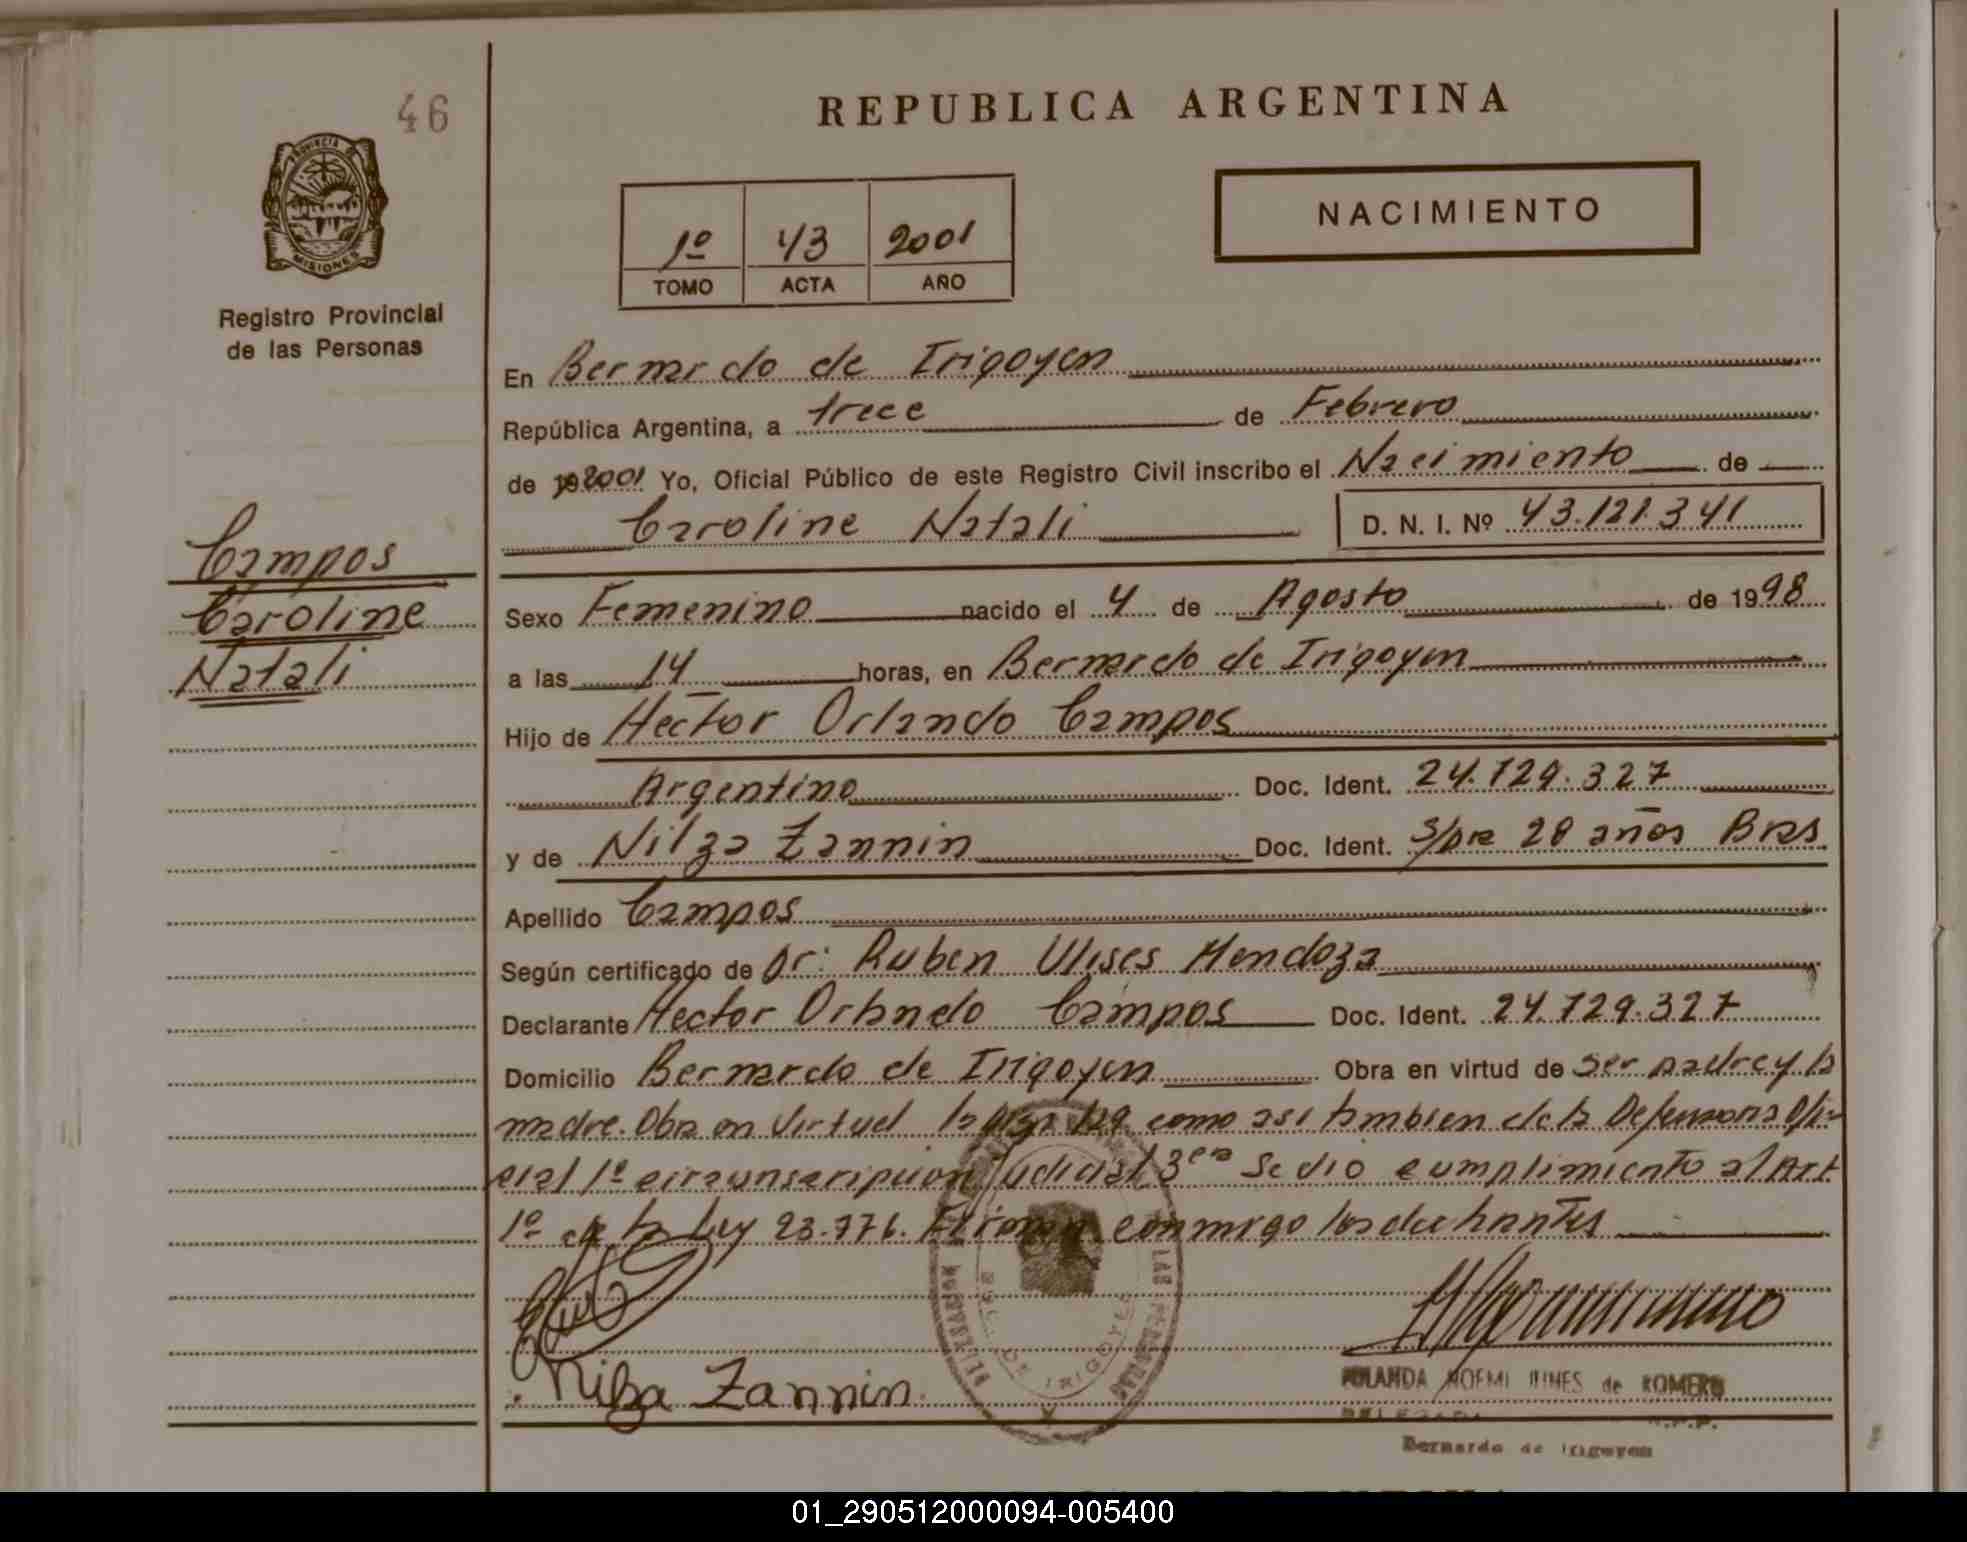 46
REPUBLICA ARGENTINA
PROVINCIA DE
MISIONES
Registro Provincial
de las Personas
1º 43 2001
TOMO ACTA AÑO
NACIMIENTO
En Bernardo de Irigoyen
República Argentina, a trece de Febrero
de 19 2001 Yo, Oficial Público de este Registro Civil inscribo el Nacimiento de
Caroline Natali D. N. I. Nº 43.121.341
Campos
Caroline
Natali
Sexo Femenino nacido el 4 de Agosto de 1998
a las 14 horas, en Bernardo de Irigoyen
Hijo de Hector Orlando Campos
Argentino Doc. Ident. 24.729.327
y de Nilza Zannin Doc. Ident. S/pre 28 años Bras
Apellido Campos
Según certificado de Dr: Ruben Ulises Mendoza
Declarante Hector Orlando Campos Doc. Ident. 24.729.327
Domicilio Bernardo de Irigoyen Obra en virtud de ser padre y la
madre. Obra en virtud la como asi tambien de la Defensoria Ofi-
cial 1º circunscripcion Judicial 3era Se dio cumplimiento al Art.
1º de la Ley 23.776. Firman conmigo los declarantes
Nilza Zannin
YOLANDA NOEMI de ROMERO
Bernardo de Irigoyen
BDO. DE IRIGOYEN
01_290512000094-005400